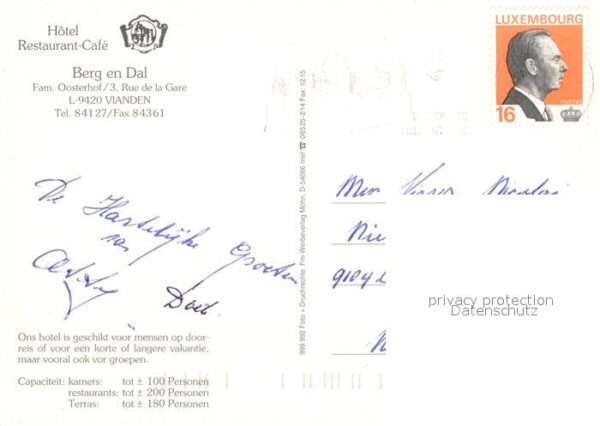 Hôtel
Restaurant-Café
Berg en Dal
Fam. Oosterhof/3, Rue de la Gare
L-9420 VIANDEN
Tel. 84127/Fax 84361
LUXEMBOURG
POSTES
16
999 992 Foto + Druckrechte: Fm-Werbeverlag Möhn, D-54666 Irrel ☎ 06525-214 Fax 1215
De Hartelijke Groeten
van
Doet
Nie
privacy protection
Datenschutz
Ons hotel is geschikt voor mensen op door-
reis of voor een korte of langere vakantie,
maar vooral ook vor groepen.
Capaciteit: kamers: tot ± 100 Personen
restaurants: tot ± 200 Personen
Terras: tot ± 180 Personen